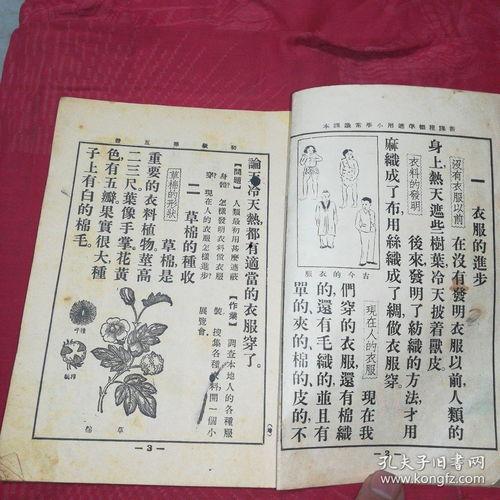 新課程標準適用小學常識課本
一　衣服的進步
沒有衣服以前
在沒有發明衣服以前，人類的
身上熱天遮些樹葉冷天披着獸皮。
衣料的發明
後來發明了紡織的方法才用
麻織成了布，用絲織成了綢做衣服穿。
古今的衣服
現在人的衣服
現在我
們穿的衣服，還有棉織
的，還有毛織的，並且有
單的，夾的，棉的，皮的，不
2
初級第五冊
論冷天熱天都有適當的衣服穿了。
【問題】人類最初用甚麼遮蔽
身體？怎樣發明衣料做衣服
穿？現在人的衣服怎樣進步？
【作業】調查本地人的各種服
裝，搜集各種衣料開一個小
展覽會。
二　草棉的種收
草棉的形狀
草棉是
重要的衣料植物，莖高
二三尺，葉像手掌，花黃
色，有五瓣，果實很大，種
子上有白的棉毛。
草棉
3
孔夫子旧书网
www.kongfz.com